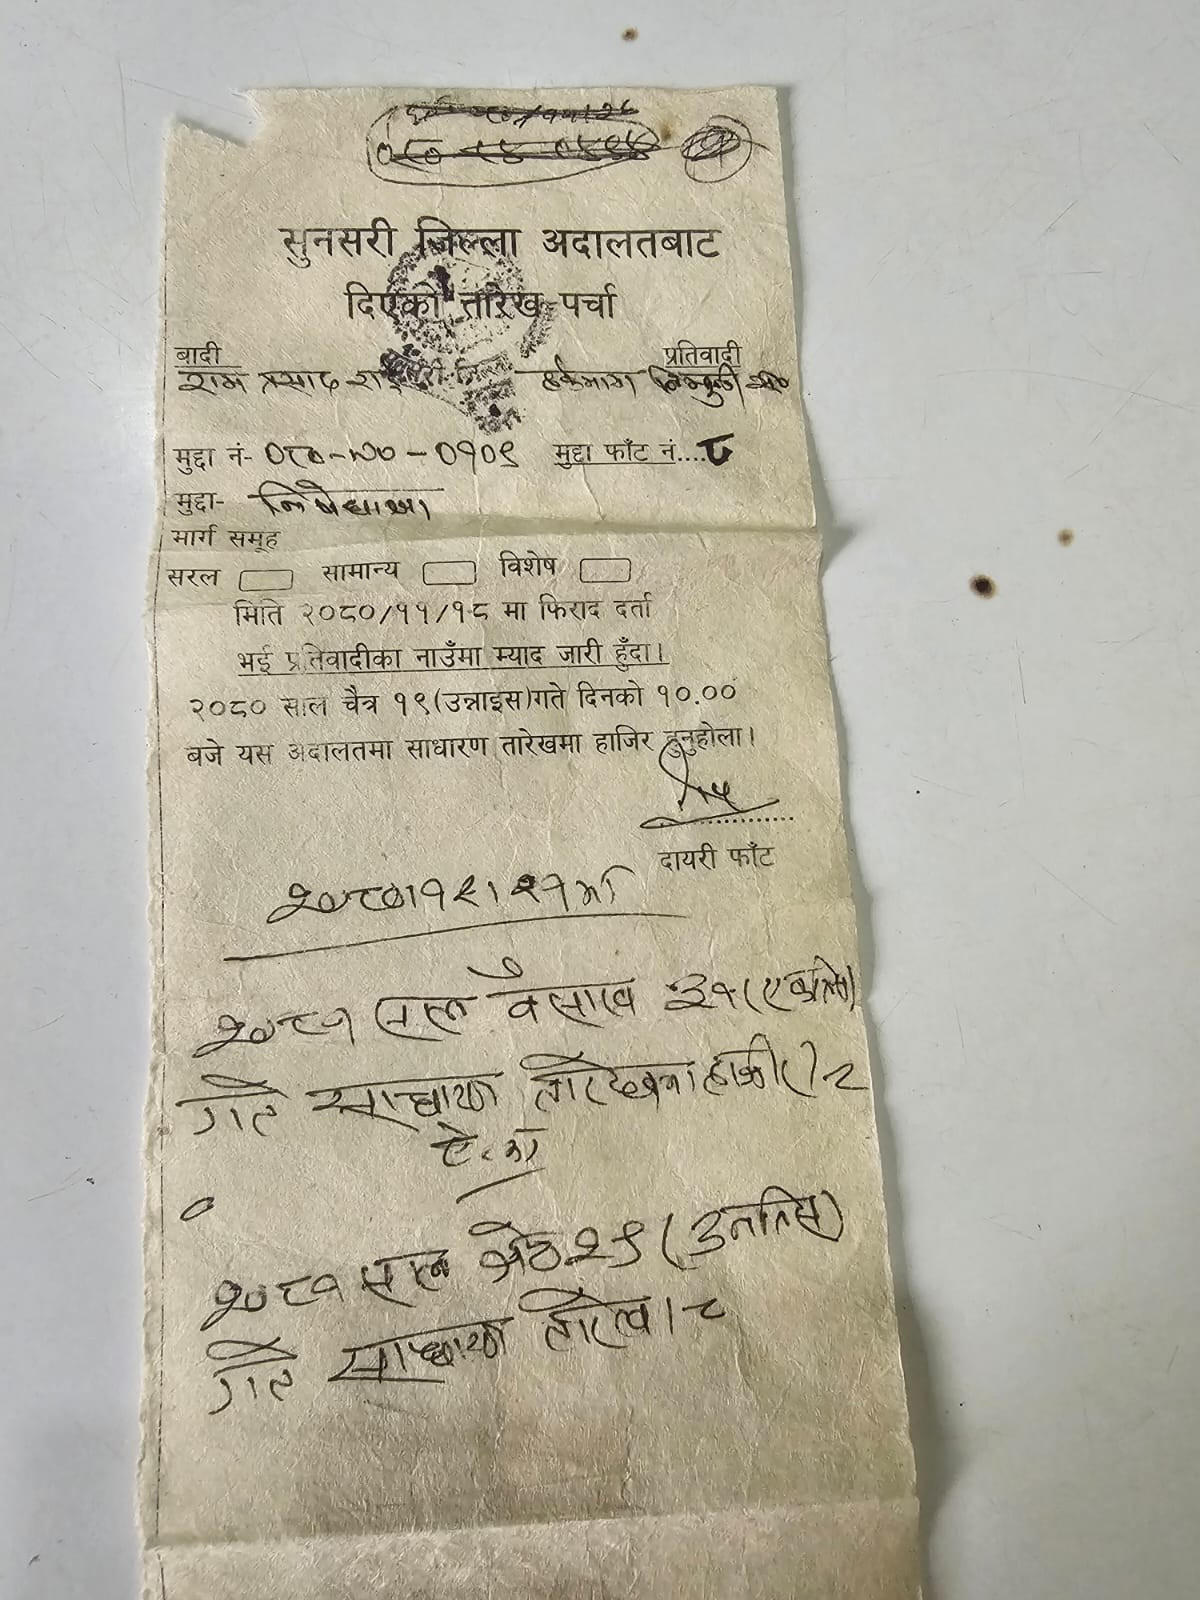 सुनसरी जिल्ला अदालतबाट
दिएको तारेख पर्चा
बादी प्रतिवादी
राम प्रसाद
मुद्दा नं- ०८०-७०-०१०९ मुद्दा फाँट नं....८
मुद्दा- निषेधाज्ञा
मार्ग समूह
सरल सामान्य विशेष
मिति २०८०/११/१८ मा फिराद दर्ता
भई प्रतिवादीका नाउँमा म्याद जारी हुँदा।
२०८० साल चैत्र १९(उन्नाइस)गते दिनको १०.००
बजे यस अदालतमा साधारण तारेखमा हाजिर हुनुहोला।
दायरी फाँट
२०८०।१२।२१
२०८१ साल वैसाख ३१
गते साधारण
२०८१ साल जेठ २९ (उनन्तिस)
गते साधारण तारेख